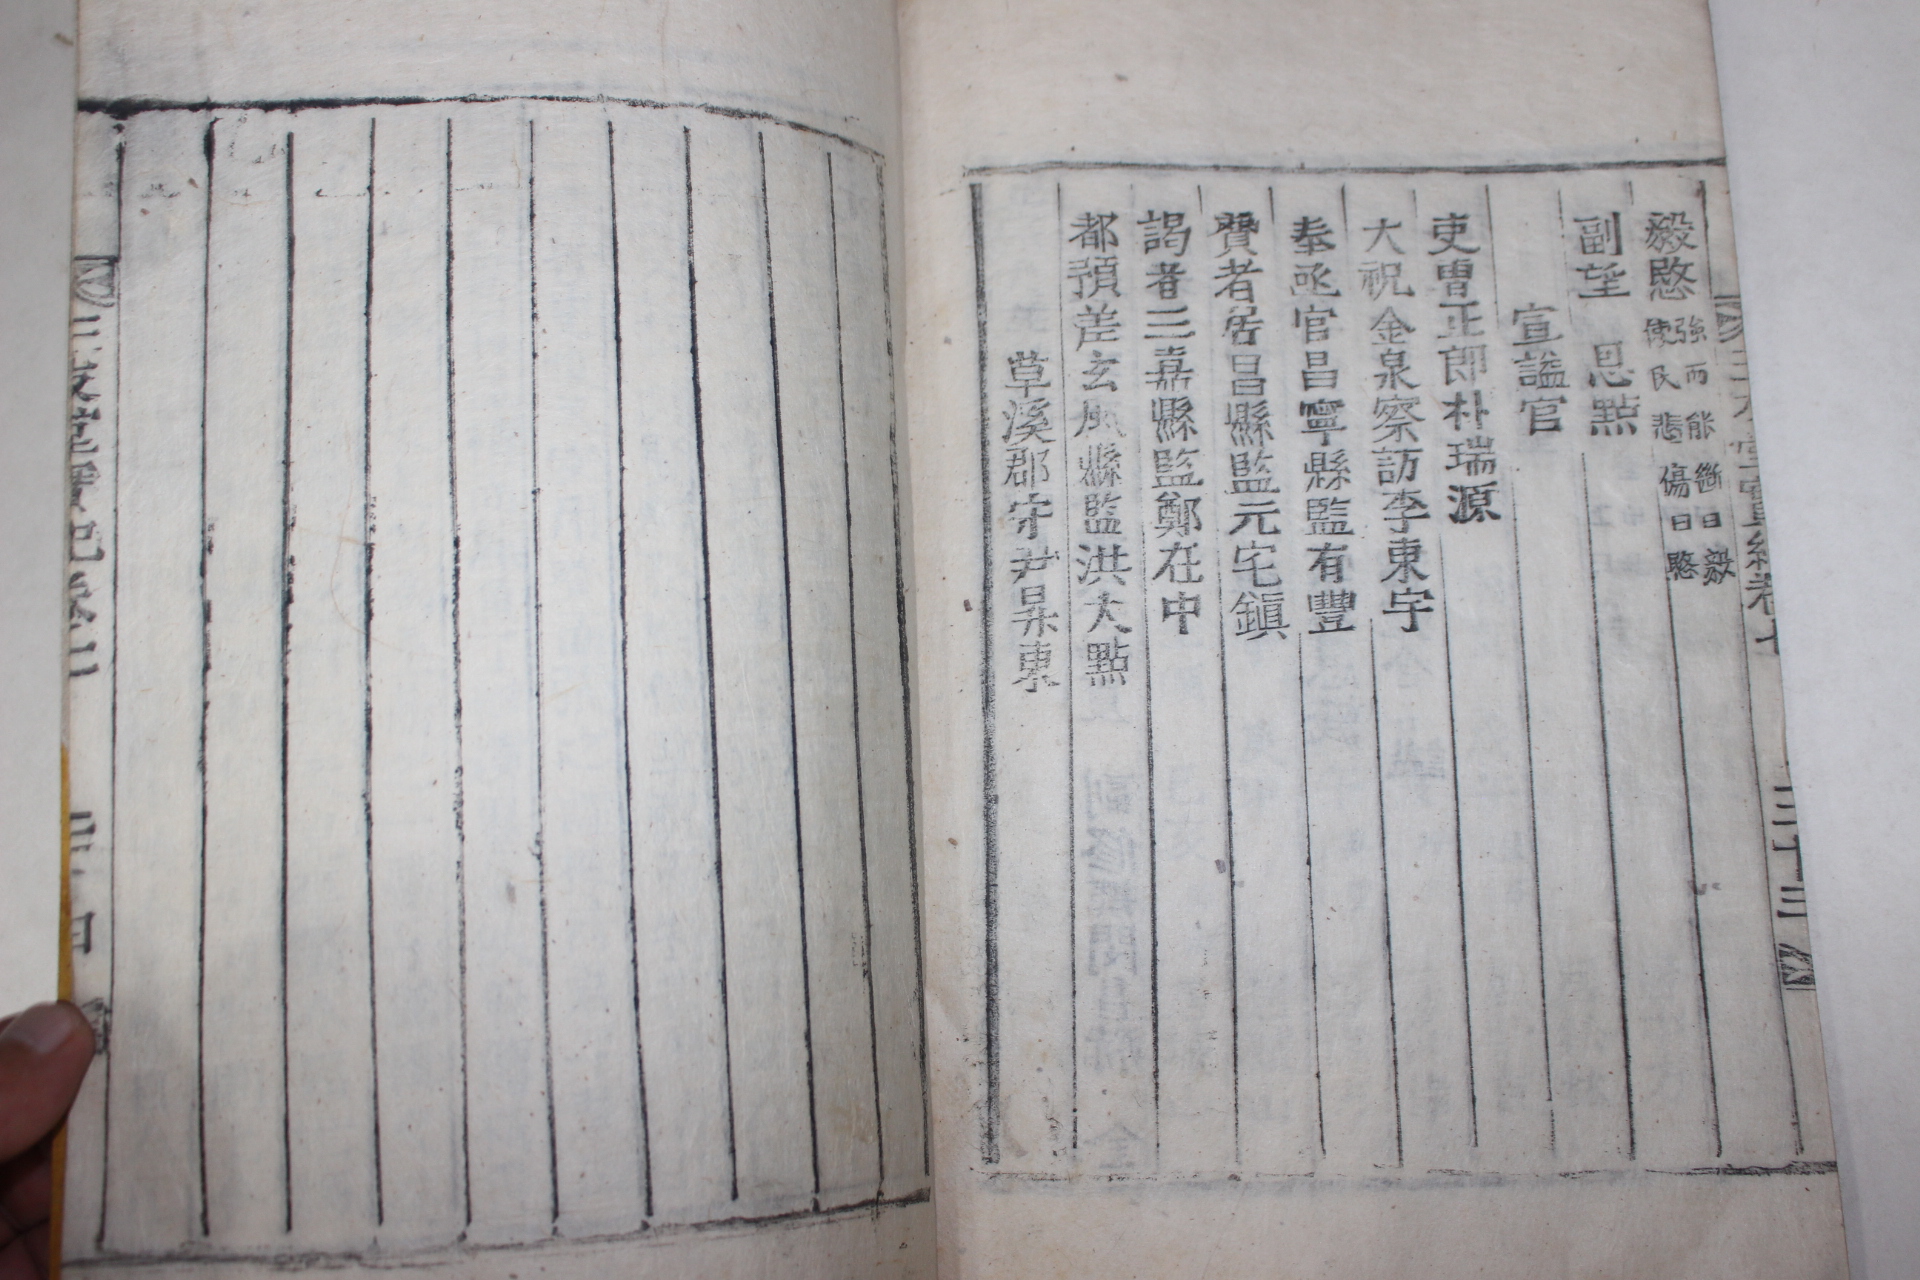 毅愍 強而能斷曰毅 使民悲傷曰愍
副望 恩點
宣謚官
吏曹正郎朴瑞源
大祝金泉察訪李東宇
奉丞官昌寧縣監有豐
贊者居昌縣監元宅鎭
謁者三嘉縣監鄭在中
都預差玄風縣監洪大點
草溪郡守尹昇東
三十三